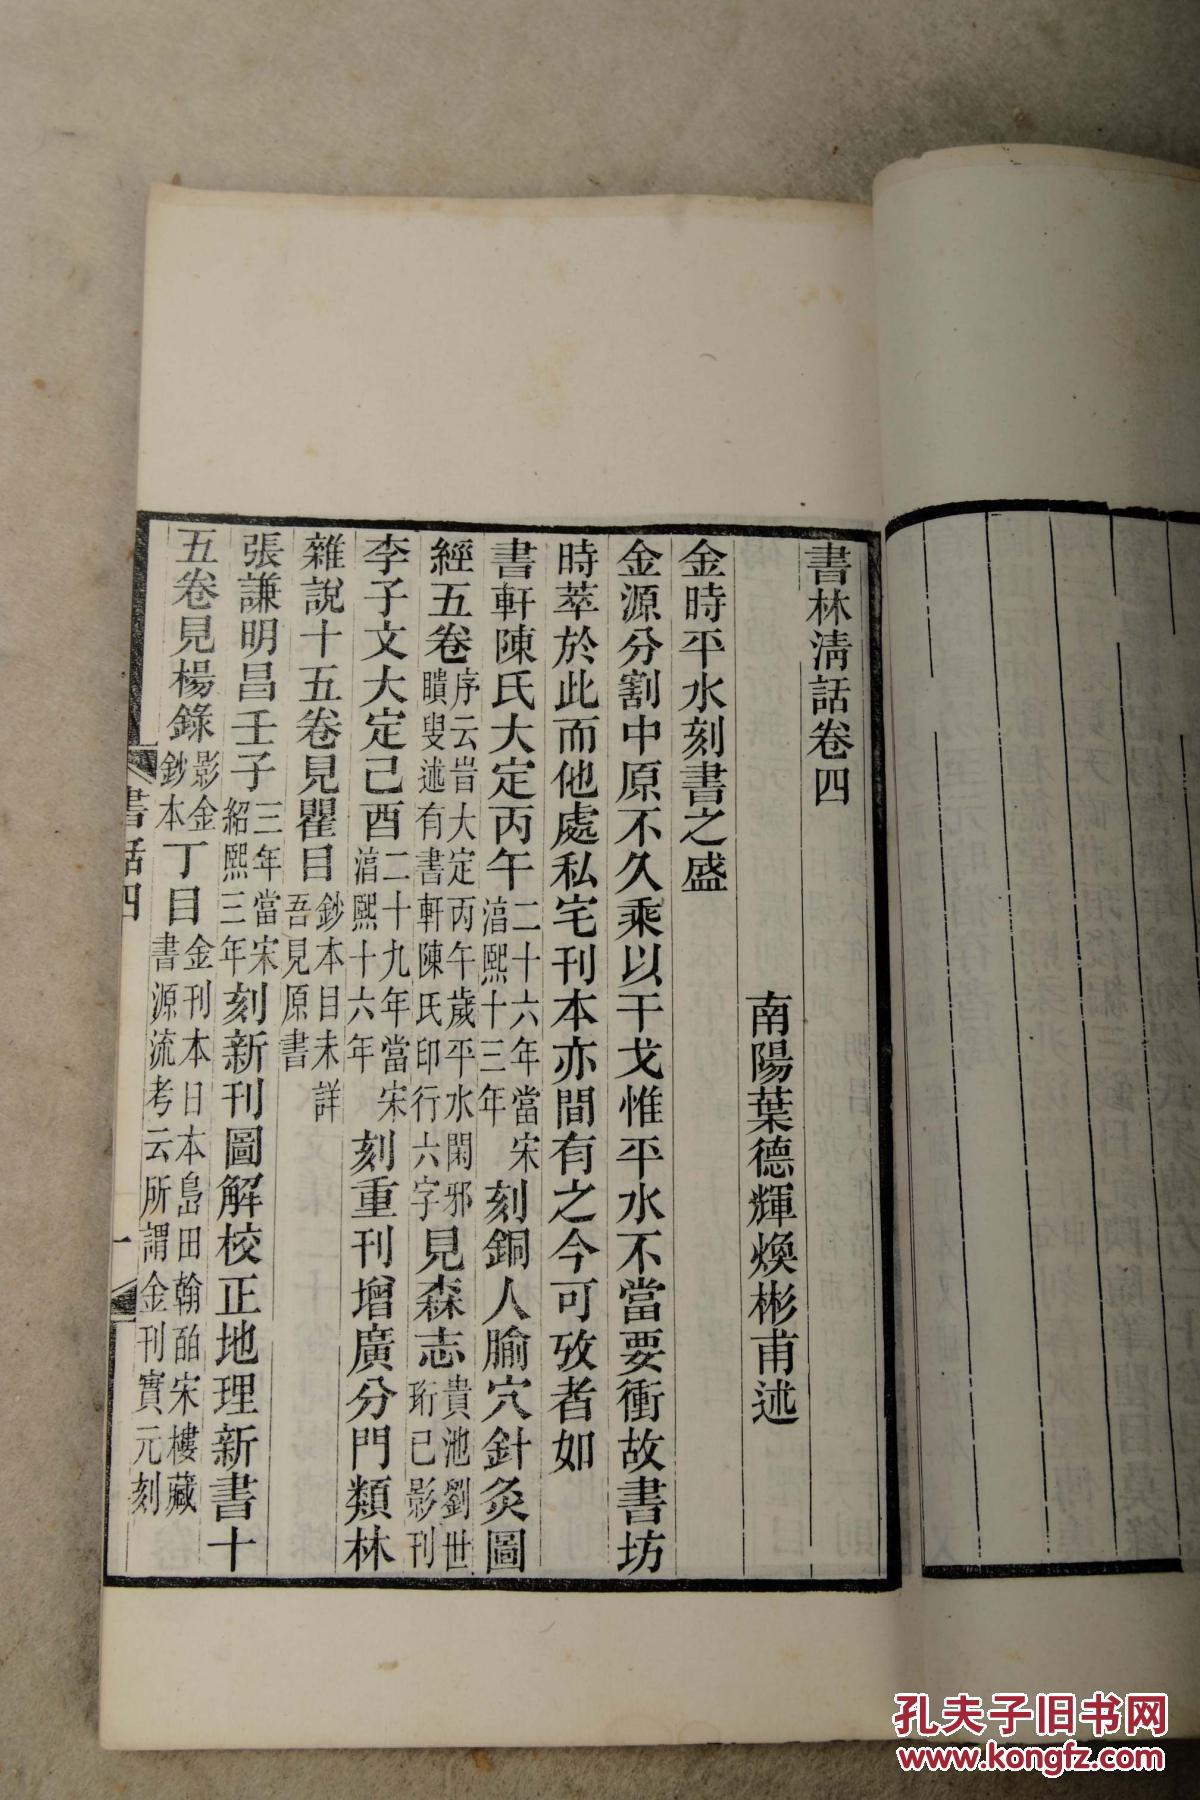 書林淸話卷四
南陽葉德輝煥彬甫述
金時平水刻書之盛
金源分割中原不久乘以干戈惟平水不當要衝故書坊
時萃於此而他處私宅刊本亦間有之今可攷者如
書軒陳氏大定丙午二十六年當宋淳熙十三年刻銅人腧穴針灸圖
經五卷序云旹大定丙午歲平水閑邪瞶叟述有書軒陳氏印行六字見森志貴池劉世珩已影刊
李子文大定己酉二十九年當宋淳熙十六年刻重刊增廣分門類林
雜說十五卷見瞿目鈔本目未詳吾見原書
張謙明昌壬子三年當宋紹熙三年刻新刊圖解校正地理新書十
五卷見楊錄影金鈔本丁目金刊本日本島田翰皕宋樓藏書源流考云所謂金刊實元刻
書話四
一
孔夫子旧书网
www.kongfz.com